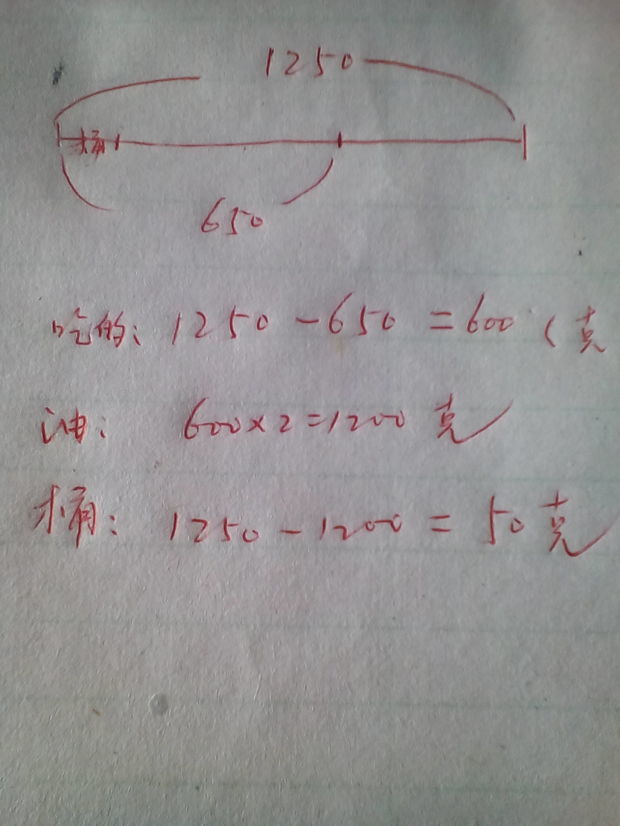 1250
桶
650
吃的: 1250-650=600 (克
油: 600×2=1200克
桶: 1250-1200=50克